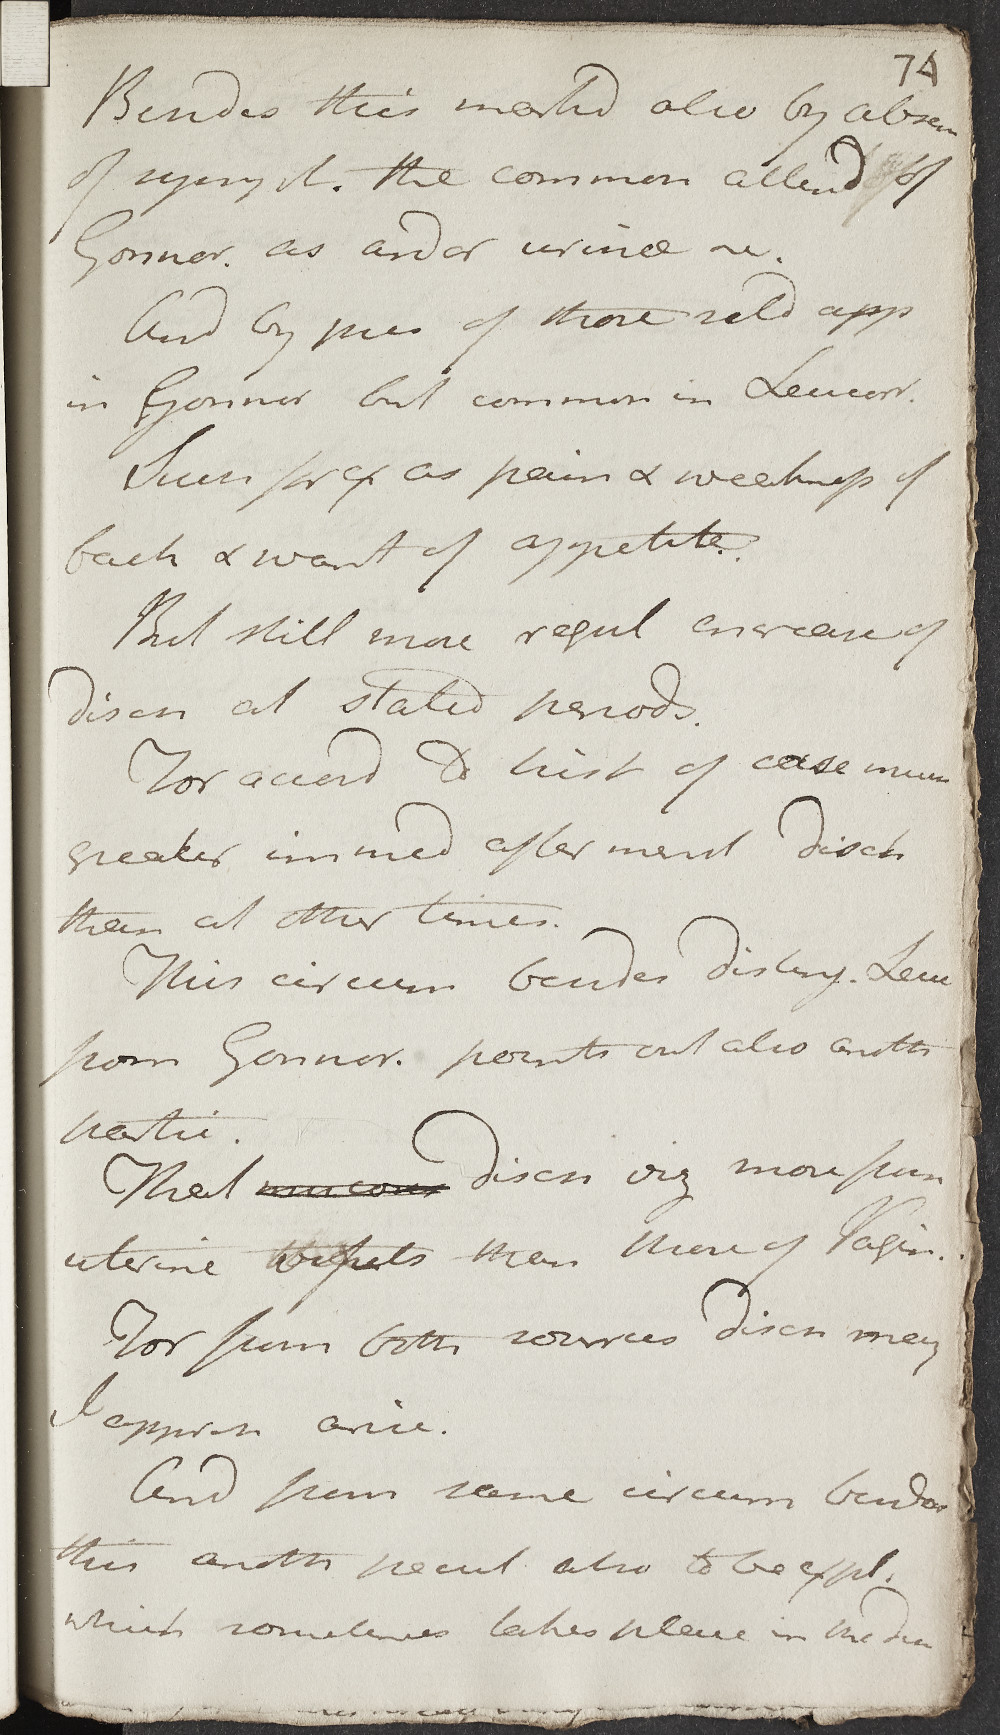 74
Besides this marked also by absen
of sympt. the common attend of
Gonnor. as ardor urinæ &c.
And by pres of those seld app
in Gonnor but common in Leucorr.
Such for ex as pain & weakness of
back & want of appetite.
But still more regul encrease of
disch at stated periods.
For accord to hist of case much
greater immed after menst disch
than at other times.
This circum besides disting. Leu
from Gonnor. points out also anoth
partic.
That mucous disch viz more from
uterine vessels than those of Vagin.
For from both sources disch may
I appreh arise.
And from same circum besides
this anoth pecul also to be expl.
which sometimes takes place in the